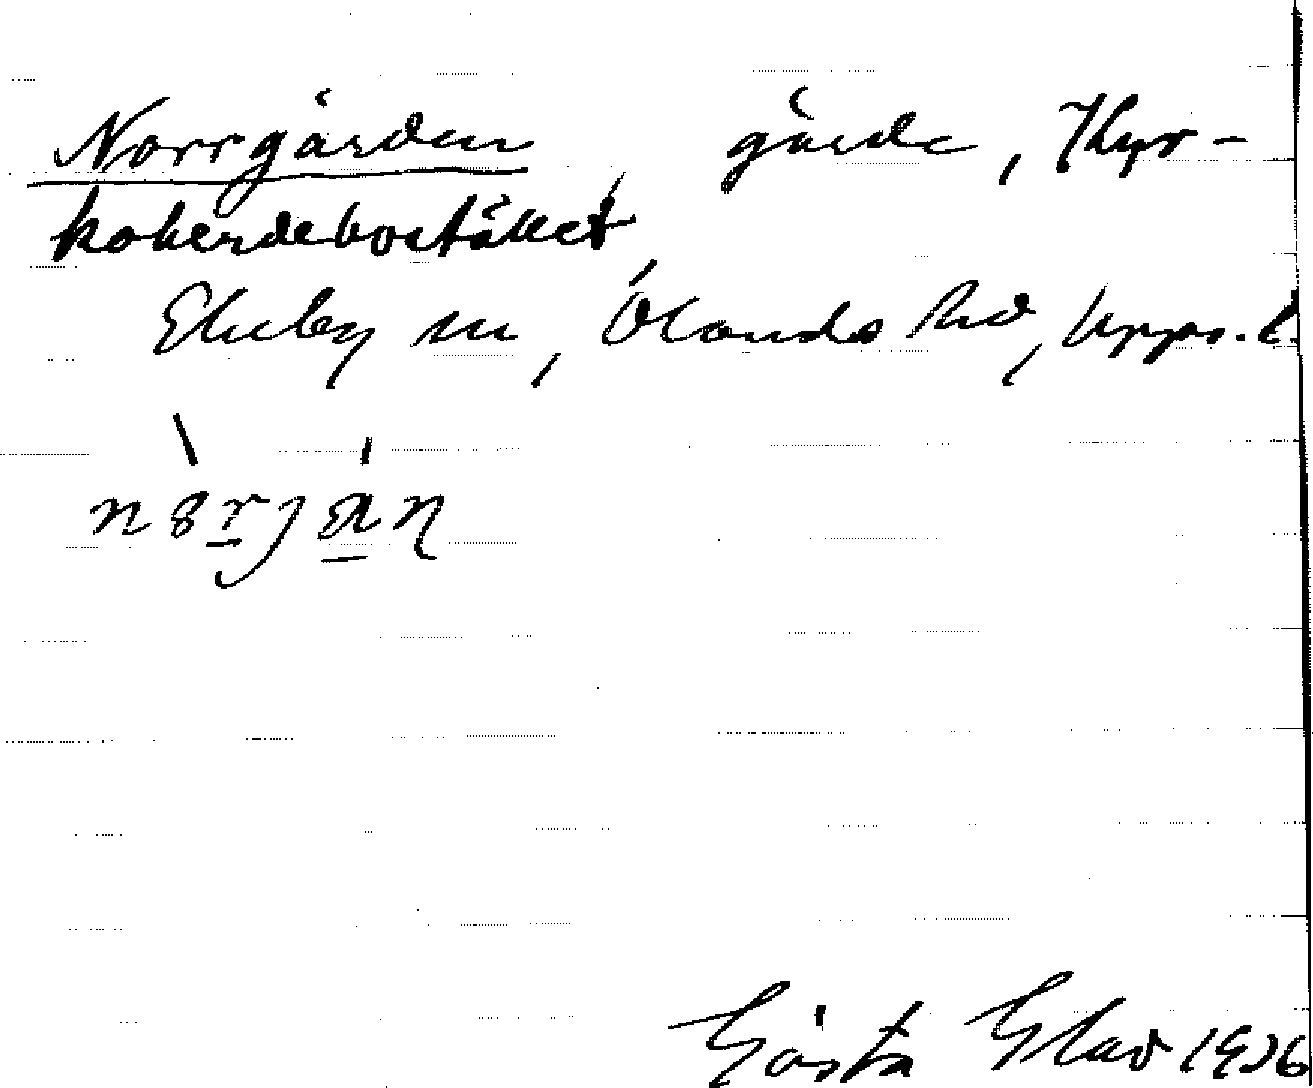 Norrgården, gärde, Kyr-
koherdebostället,
Ekeby sn, Olands hd, Upps. l.
Gösta Glad 1926